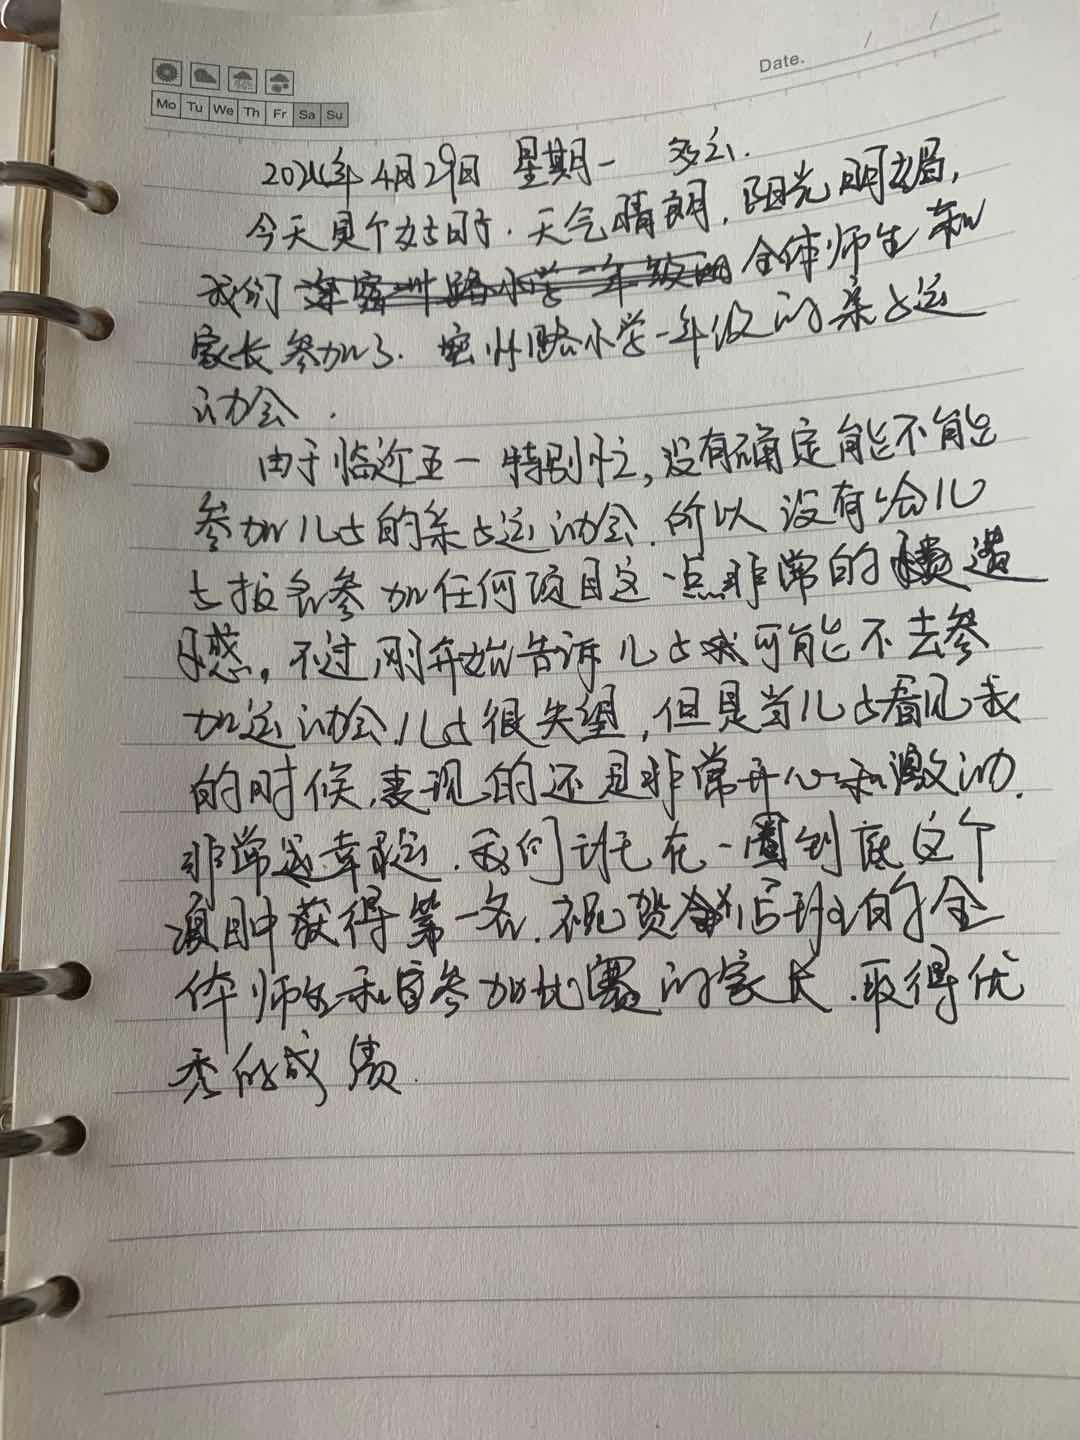 Date. / /
Mo Tu We Th Fr Sa Su
2024年4月29日 星期一 多云.
今天是个好日子.天气晴朗,阳光明媚,
我们 全体师生和
家长参加了.密州路小学一年级的亲子运
动会.
由于临近五一特别忙,没有确定能不能
参加儿子的亲子运动会.所以没有给儿
子报名参加任何项目这一点非常的遗
憾。不过刚开始告诉儿子我可能不去参
加运动会儿子很失望,但是当儿子看见我
的时候,表现的还是非常开心和激动.
非常幸运.我们班在一圈到底这个
项目中获得第一名.祝贺班的全
体师生和参加比赛的家长.取得优
秀的成绩.